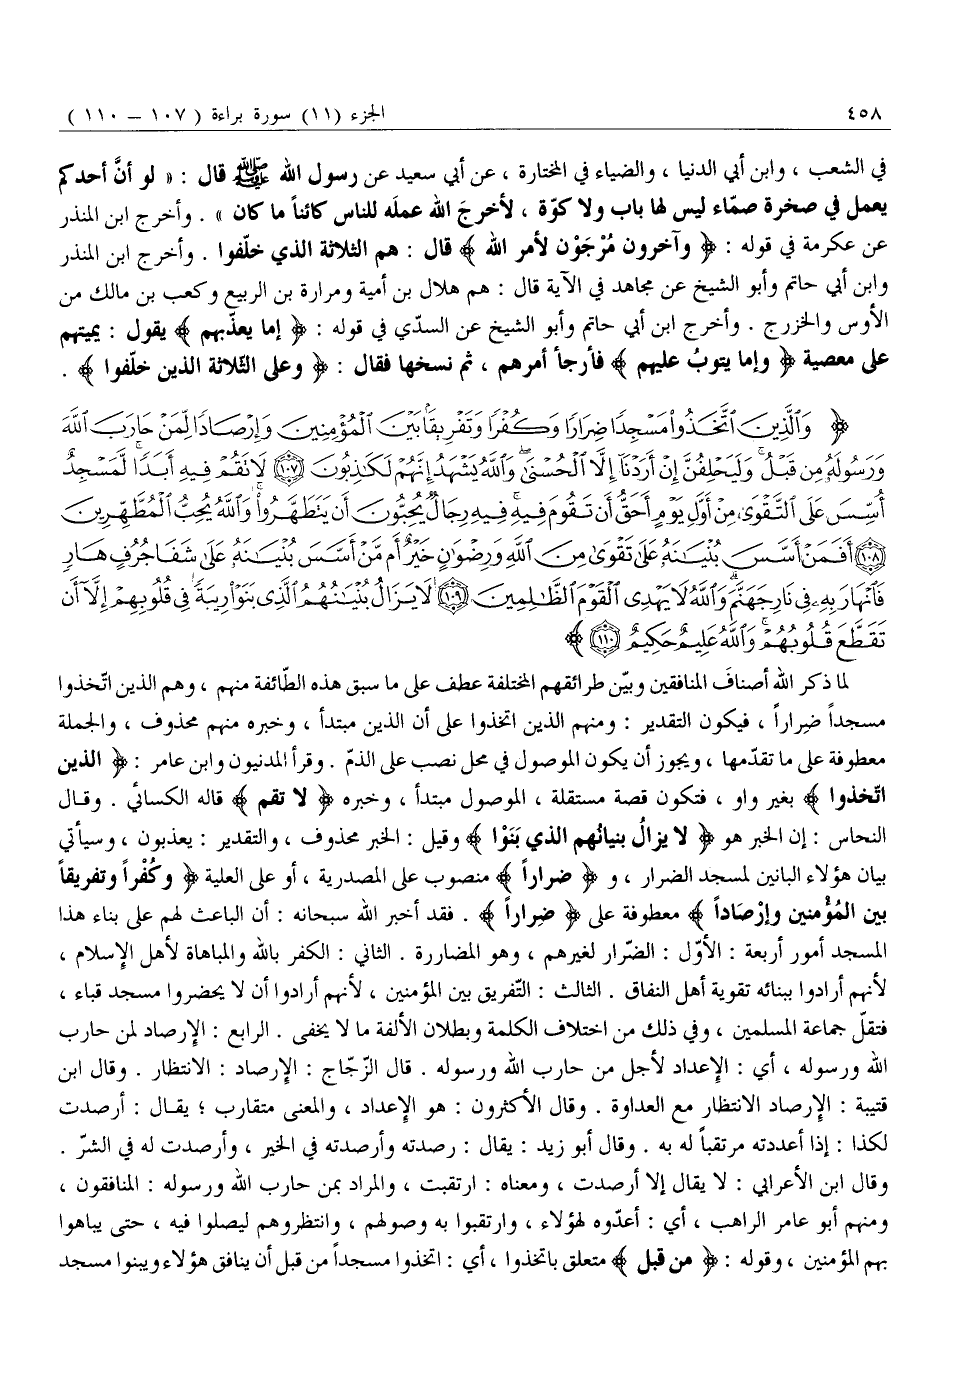 ٤٥٨ الجزء (١١) سورة براءة ( ١٠٧ – ١١٠ )
في الشعب ، وابن أبي الدنيا ، والضياء في المختارة ، عن أبي سعيد عن رسول الله ﷺ قال : « لو أنَّ أحدكم
يعمل في صخرة صمّاء ليس لها باب ولا كوّة ، لأخرجَ الله عملَه للناس كائناً ما كان » . وأخرج ابن المنذر
عن عكرمة في قوله : ﴿ وآخرون مُرْجَوْن لأمر الله ﴾ قال : هم الثلاثة الذي خلّفوا . وأخرج ابن المنذر
وابن أبي حاتم وأبو الشيخ عن مجاهد في الآية قال : هم هلال بن أمية ومرارة بن الربيع وكعب بن مالك من
الأوس والخزرج . وأخرج ابن أبي حاتم وأبو الشيخ عن السدّي في قوله : ﴿ إما يعذّبهم ﴾ يقول : يميتهم
على معصية ﴿ وإما يتوبُ عليهم ﴾ فأرجأ أمرهم ، ثم نسخها فقال : ﴿ وعلى الثّلاثة الذين خلّفوا ﴾ .
﴿ وَالَّذِينَ اتَّخَذُوا مَسْجِدًا ضِرَارًا وَكُفْرًا وَتَفْرِيقًا بَيْنَ الْمُؤْمِنِينَ وَإِرْصَادًا لِّمَنْ حَارَبَ اللَّهَ
وَرَسُولَهُ مِن قَبْلُ ۚ وَلَيَحْلِفُنَّ إِنْ أَرَدْنَا إِلَّا الْحُسْنَىٰ ۖ وَاللَّهُ يَشْهَدُ إِنَّهُمْ لَكَاذِبُونَ ١٠٧ لَا تَقُمْ فِيهِ أَبَدًا ۚ لَّمَسْجِدٌ
أُسِّسَ عَلَى التَّقْوَىٰ مِنْ أَوَّلِ يَوْمٍ أَحَقُّ أَن تَقُومَ فِيهِ ۚ فِيهِ رِجَالٌ يُحِبُّونَ أَن يَتَطَهَّرُوا ۚ وَاللَّهُ يُحِبُّ الْمُطَّهِّرِينَ
١٠٨ أَفَمَنْ أَسَّسَ بُنْيَانَهُ عَلَىٰ تَقْوَىٰ مِنَ اللَّهِ وَرِضْوَانٍ خَيْرٌ أَم مَّنْ أَسَّسَ بُنْيَانَهُ عَلَىٰ شَفَا جُرُفٍ هَارٍ
فَانْهَارَ بِهِ فِي نَارِ جَهَنَّمَ ۗ وَاللَّهُ لَا يَهْدِي الْقَوْمَ الظَّالِمِينَ ١٠٩ لَا يَزَالُ بُنْيَانُهُمُ الَّذِي بَنَوْا رِيبَةً فِي قُلُوبِهِمْ إِلَّا أَن
تَقَطَّعَ قُلُوبُهُمْ ۗ وَاللَّهُ عَلِيمٌ حَكِيمٌ ١١٠ ﴾
لما ذكر الله أصنافَ المنافقين وبيّن طرائقهم المختلفة عطف على ما سبق هذه الطّائفة منهم ، وهم الذين اتّخذوا
مسجداً ضِراراً ، فيكون التقدير : ومنهم الذين اتخذوا على أن الذين مبتدأ ، وخبره منهم محذوف ، والجملة
معطوفة على ما تقدّمها ، ويجوز أن يكون الموصول في محل نصب على الذمّ . وقرأ المدنيون وابن عامر : ﴿ الذين
اتّخذوا ﴾ بغير واو ، فتكون قصة مستقلة ، الموصول مبتدأ ، وخبره ﴿ لا تقم ﴾ قاله الكسائي . وقال
النحاس : إن الخبر هو ﴿ لا يزالُ بنيانُهم الذي بَنَوْا ﴾ وقيل : الخبر محذوف ، والتقدير : يعذبون ، وسيأتي
بيان هؤلاء البانين لمسجد الضرار ، و ﴿ ضراراً ﴾ منصوب على المصدرية ، أو على العلية ﴿ وكُفْراً وتفريقاً
بين المُؤْمنين وإرْصَاداً ﴾ معطوفة على ﴿ ضِراراً ﴾ . فقد أخبر الله سبحانه : أن الباعث لهم على بناء هذا
المسجد أمور أربعة : الأوّل : الضّرار لغيرهم ، وهو المضاررة . الثاني : الكفر بالله والمباهاة لأهل الإسلام ،
لأنهم أرادوا ببنائه تقوية أهل النفاق . الثالث : التّفريق بين المؤمنين ، لأنهم أرادوا أن لا يحضروا مسجد قباء ،
فتقلّ جماعة المسلمين ، وفي ذلك من اختلاف الكلمة وبطلان الألفة ما لا يخفى . الرابع : الإرصاد لمن حارب
الله ورسوله ، أي : الإعداد لأجل من حارب الله ورسوله . قال الزّجاج : الإرصاد : الانتظار . وقال ابن
قتيبة : الإرصاد الانتظار مع العداوة . وقال الأكثرون : هو الإعداد ، والمعنى متقارب ؛ يقال : أرصدت
لكذا : إذا أعددته مرتقباً له به . وقال أبو زيد : يقال : رصدته وأرصدته في الخير ، وأرصدت له في الشرّ .
وقال ابن الأعرابي : لا يقال إلا أرصدت ، ومعناه : ارتقبت ، والمراد بمن حارب الله ورسوله : المنافقون ،
ومنهم أبو عامر الراهب ، أي : أعدّوه لهؤلاء ، وارتقبوا به وصولهم ، وانتظروهم ليصلوا فيه ، حتى يباهوا
بهم المؤمنين ، وقوله : ﴿ من قبل ﴾ متعلق باتخذوا ، أي : اتخذوا مسجداً من قبل أن ينافق هؤلاء ويبنوا مسجد